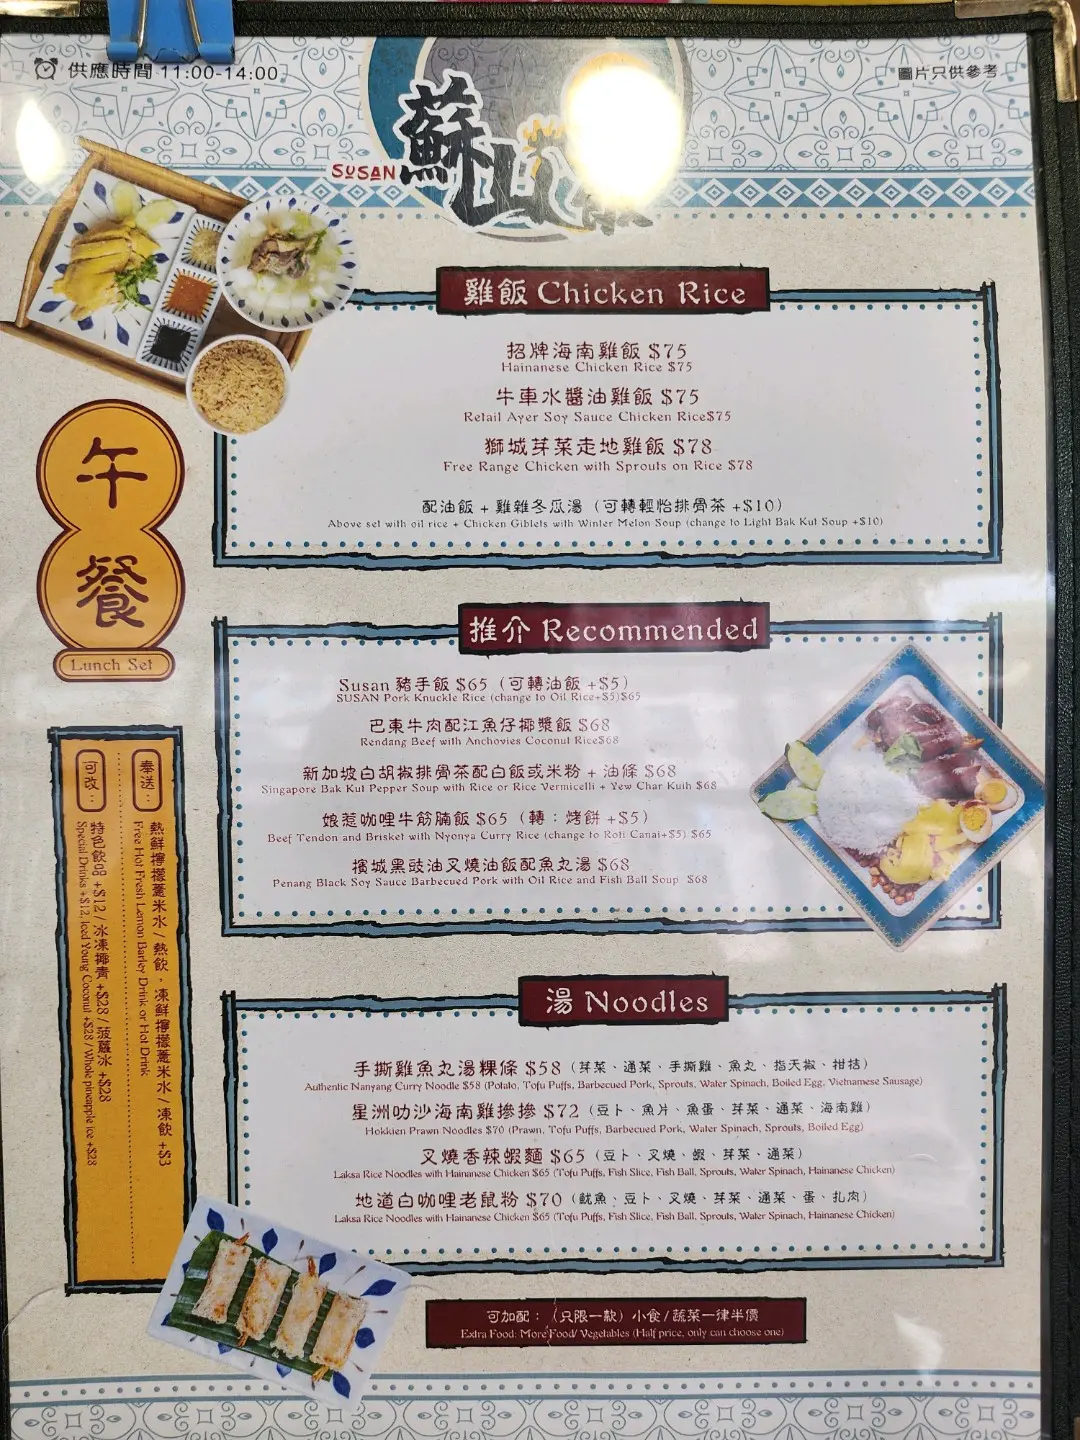 供應時間 11:00-14:00
圖片只供參考
SUSAN
蘇山
雞飯 Chicken Rice
招牌海南雞飯 $75
Hainanese Chicken Rice $75
牛車水醬油雞飯 $75
Retail Ayer Soy Sauce Chicken Rice$75
獅城芽菜走地雞飯 $78
Free Range Chicken with Sprouts on Rice $78
配油飯 + 雞雜冬瓜湯（可轉輕怡排骨茶 +$10）
Above set with oil rice + Chicken Giblets with Winter Melon Soup (change to Light Bak Kut Soup +$10)
午餐
Lunch Set
推介 Recommended
Susan 豬手飯 $65（可轉油飯 +$5）
SUSAN Pork Knuckle Rice (change to Oil Rice+$5)$65
巴東牛肉配江魚仔椰漿飯 $68
Rendang Beef with Anchovies Coconut Rice$68
新加坡白胡椒排骨茶配白飯或米粉 + 油條 $68
Singapore Bak Kut Pepper Soup with Rice or Rice Vermicelli + Yew Char Kuih $68
娘惹咖哩牛筋腩飯 $65（轉：烤餅 +$5）
Beef Tendon and Brisket with Nyonya Curry Rice (change to Roti Canai+$5) $65
擯城黑豉油叉燒油飯配魚丸湯 $68
Penang Black Soy Sauce Barbecued Pork with Oil Rice and Fish Ball Soup $68
奉送：
熱鮮檸檬薏米水 / 熱飲，凍鮮檸檬薏米水 / 凍飲 +$3
Free Hot Fresh Lemon Barley Drink or Hot Drink
可改：
特色飲品 +$12 / 冰凍椰青 +$28 / 菠蘿冰 +$28
Special Drinks +$12, Iced Young Coconut +$28 / Whole pineapple ice +$28
湯 Noodles
手撕雞魚丸湯粿條 $58（芽菜、通菜、手撕雞、魚丸、指天椒、柑桔）
Authentic Nanyang Curry Noodle $58 (Potato, Tofu Puffs, Barbecued Pork, Sprouts, Water Spinach, Boiled Egg, Vietnamese Sausage)
星洲叻沙海南雞摻摻 $72（豆卜、魚片、魚蛋、芽菜、通菜、海南雞）
Hokkien Prawn Noodles $70 (Prawn, Tofu Puffs, Barbecued Pork, Water Spinach, Sprouts, Boiled Egg)
叉燒香辣蝦麵 $65（豆卜、叉燒、蝦、芽菜、通菜）
Laksa Rice Noodles with Hainanese Chicken $65 (Tofu Puffs, Fish Slice, Fish Ball, Sprouts, Water Spinach, Hainanese Chicken)
地道白咖哩老鼠粉 $70（魷魚、豆卜、叉燒、芽菜、通菜、蛋、扎肉）
Laksa Rice Noodles with Hainanese Chicken $65 (Tofu Puffs, Fish Slice, Fish Ball, Sprouts, Water Spinach, Hainanese Chicken)
可加配：（只限一款）小食 / 蔬菜一律半價
Extra Food: More Food/ Vegetables (Half price, only can choose one)